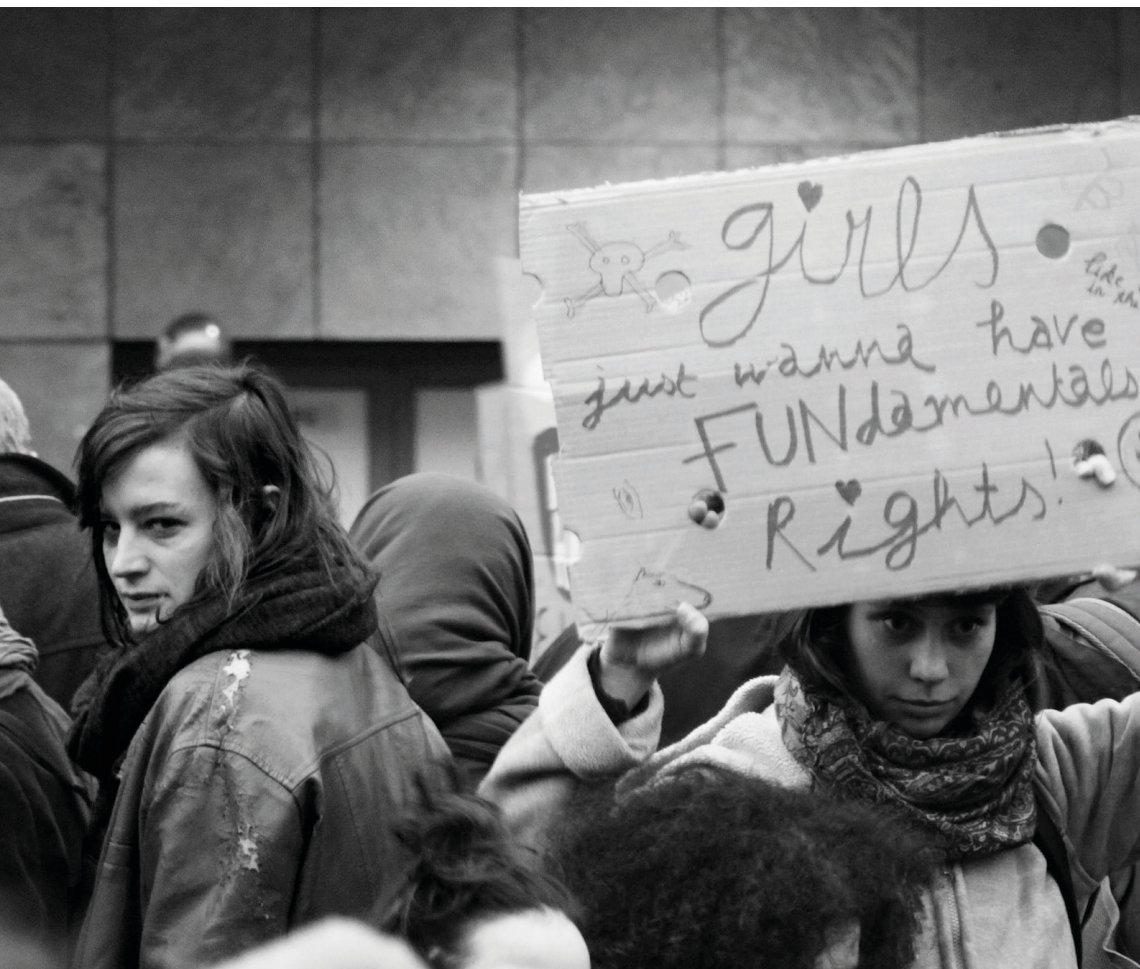 girls
just wanna have
FUNdamentals
Rights!
in the